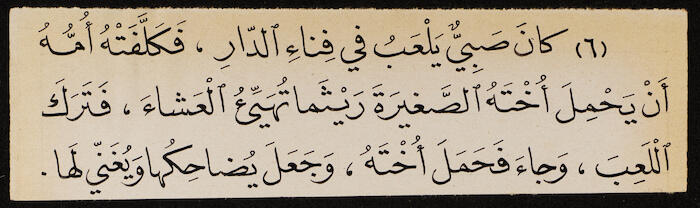 (٦) كَانَ صَبِيٌّ يَلْعَبُ في فِناءِ ٱلدّارِ ، فَكَلَّفَتْهُ أُمُّهُ
أَنْ يَحْمِلَ أُخْتَهُ ٱلصَّغيرَةَ رَيْثَما تُهَيِّئُ ٱلْعَشاءَ ، فَتَرَكَ
ٱللَّعِبَ ، وَجاءَ فَحَمَلَ أُخْتَهُ ، وَجَعَلَ يُضاحِكُها وَيُغَنّي لَها .